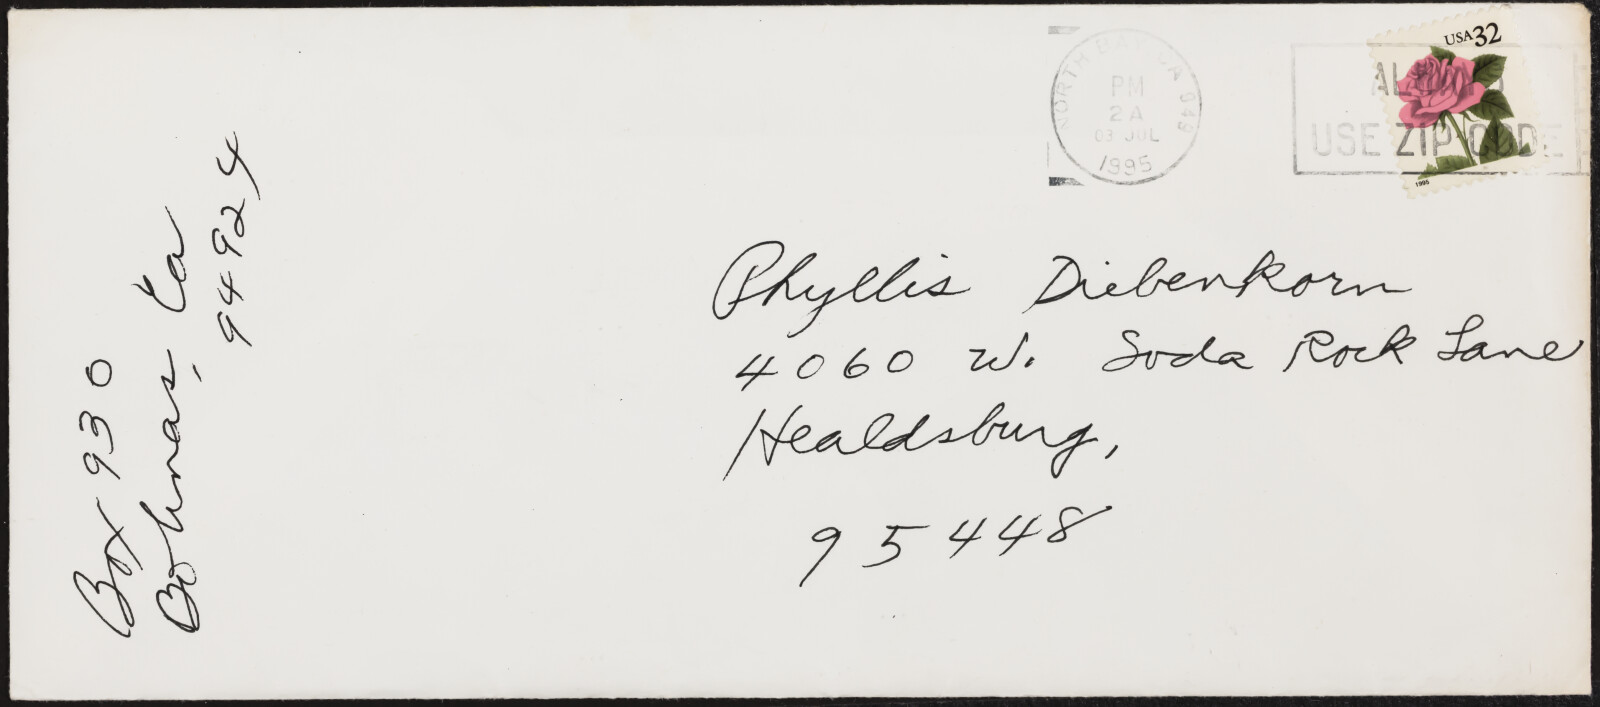 Box 930
Bolinas, Ca
94924
NORTH BAY, CA 949
PM
2A
03 JUL
1995
USA 32
ALWAYS
USE ZIP CODE
1995
Phyllis Diebenkorn
4060 W. Soda Rock Lane
Healdsburg,
95448